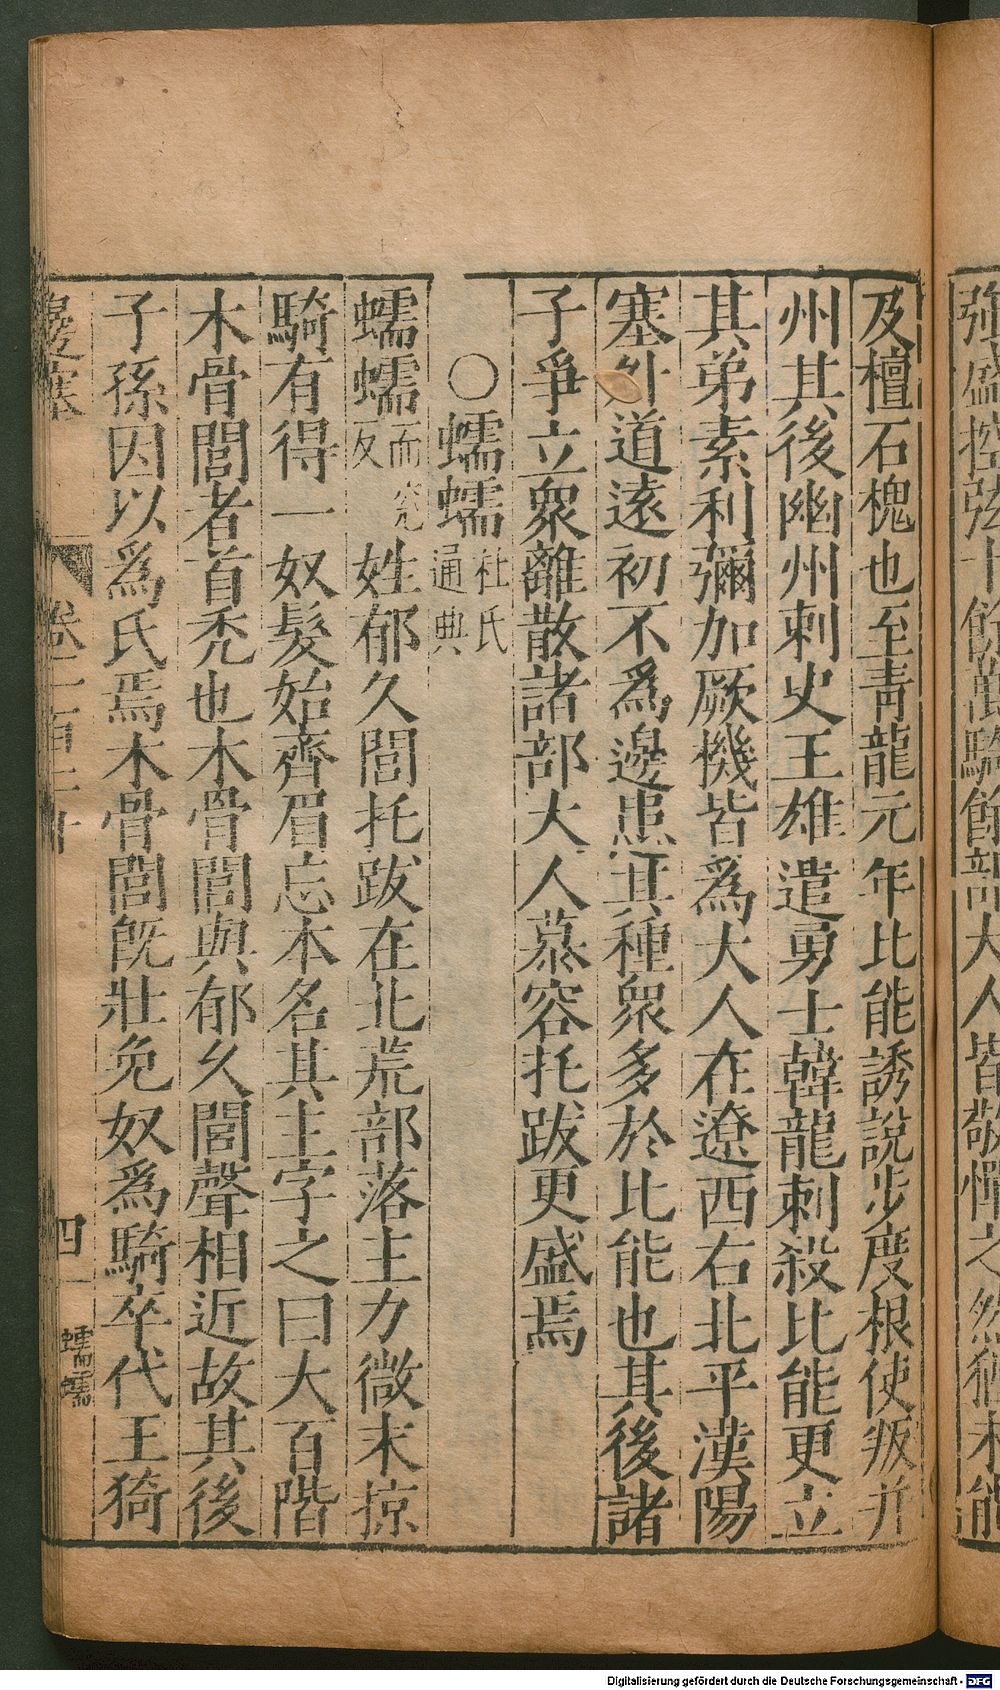 及檀石槐也至靑龍元年比能誘說步度根使叛并
州其後幽州刺史王雄遣勇士韓龍刺殺比能更立
其弟素利彌加厥機皆爲大人在遼西右北平漢陽
塞外道遠初不爲邊患其種衆多於比能也其後諸
子爭立衆離散諸部大人慕容托跋更盛焉
○蠕蠕杜氏通典
蠕蠕而兖反姓郁久閭托跋在北荒部落主力微末掠
騎有得一奴髮始齊眉忘本名其主字之曰大百階
木骨閭者首禿也木骨閭與郁久閭聲相近故其後
子孫因以爲氏焉木骨閭旣壯免奴爲騎卒代王猗
邊塞
卷二百
四
蠕蠕
强盛控弦十餘萬騎餘部大人皆敬憚之然猶未能
Digitalisierung gefördert durch die Deutsche Forschungsgemeinschaft - DFG